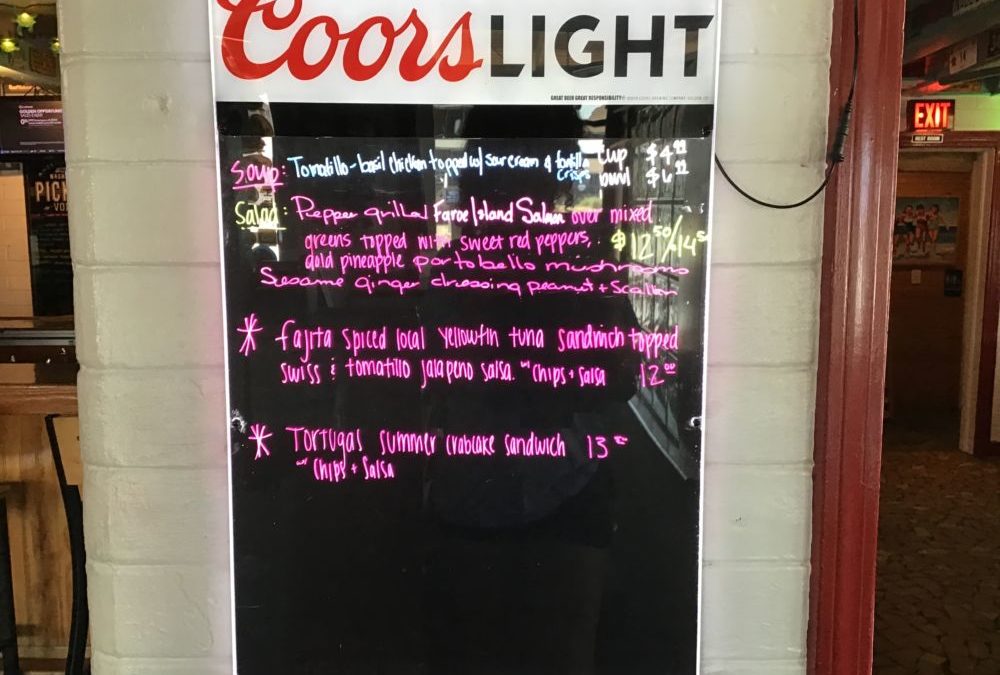 Coors LIGHT
GREAT BEER GREAT RESPONSIBILITY
Soup: Tomatillo-basil chicken topped w/ sour cream & tortilla crisps
Cup $4
bowl $6
Salad: Pepper grilled Faroe Island Salmon over mixed
greens topped with sweet red peppers, $12 50/14
gold pineapple portobello mushrooms
Sesame ginger dressing peanut + Scallion
* fajita spiced local yellowfin tuna sandwich topped
swiss & tomatillo jalapeno salsa. w/ chips + salsa 12 00
* Tortugas summer crabcake sandwich 13
w/ chips + salsa
EXIT
PICK